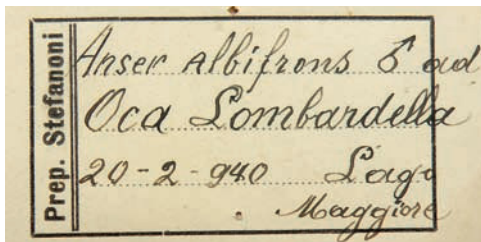 Prep. Stefanoni
Anser albifrons ♂ ad
Oca Lombardella
20-2-940 Lago
Maggiore